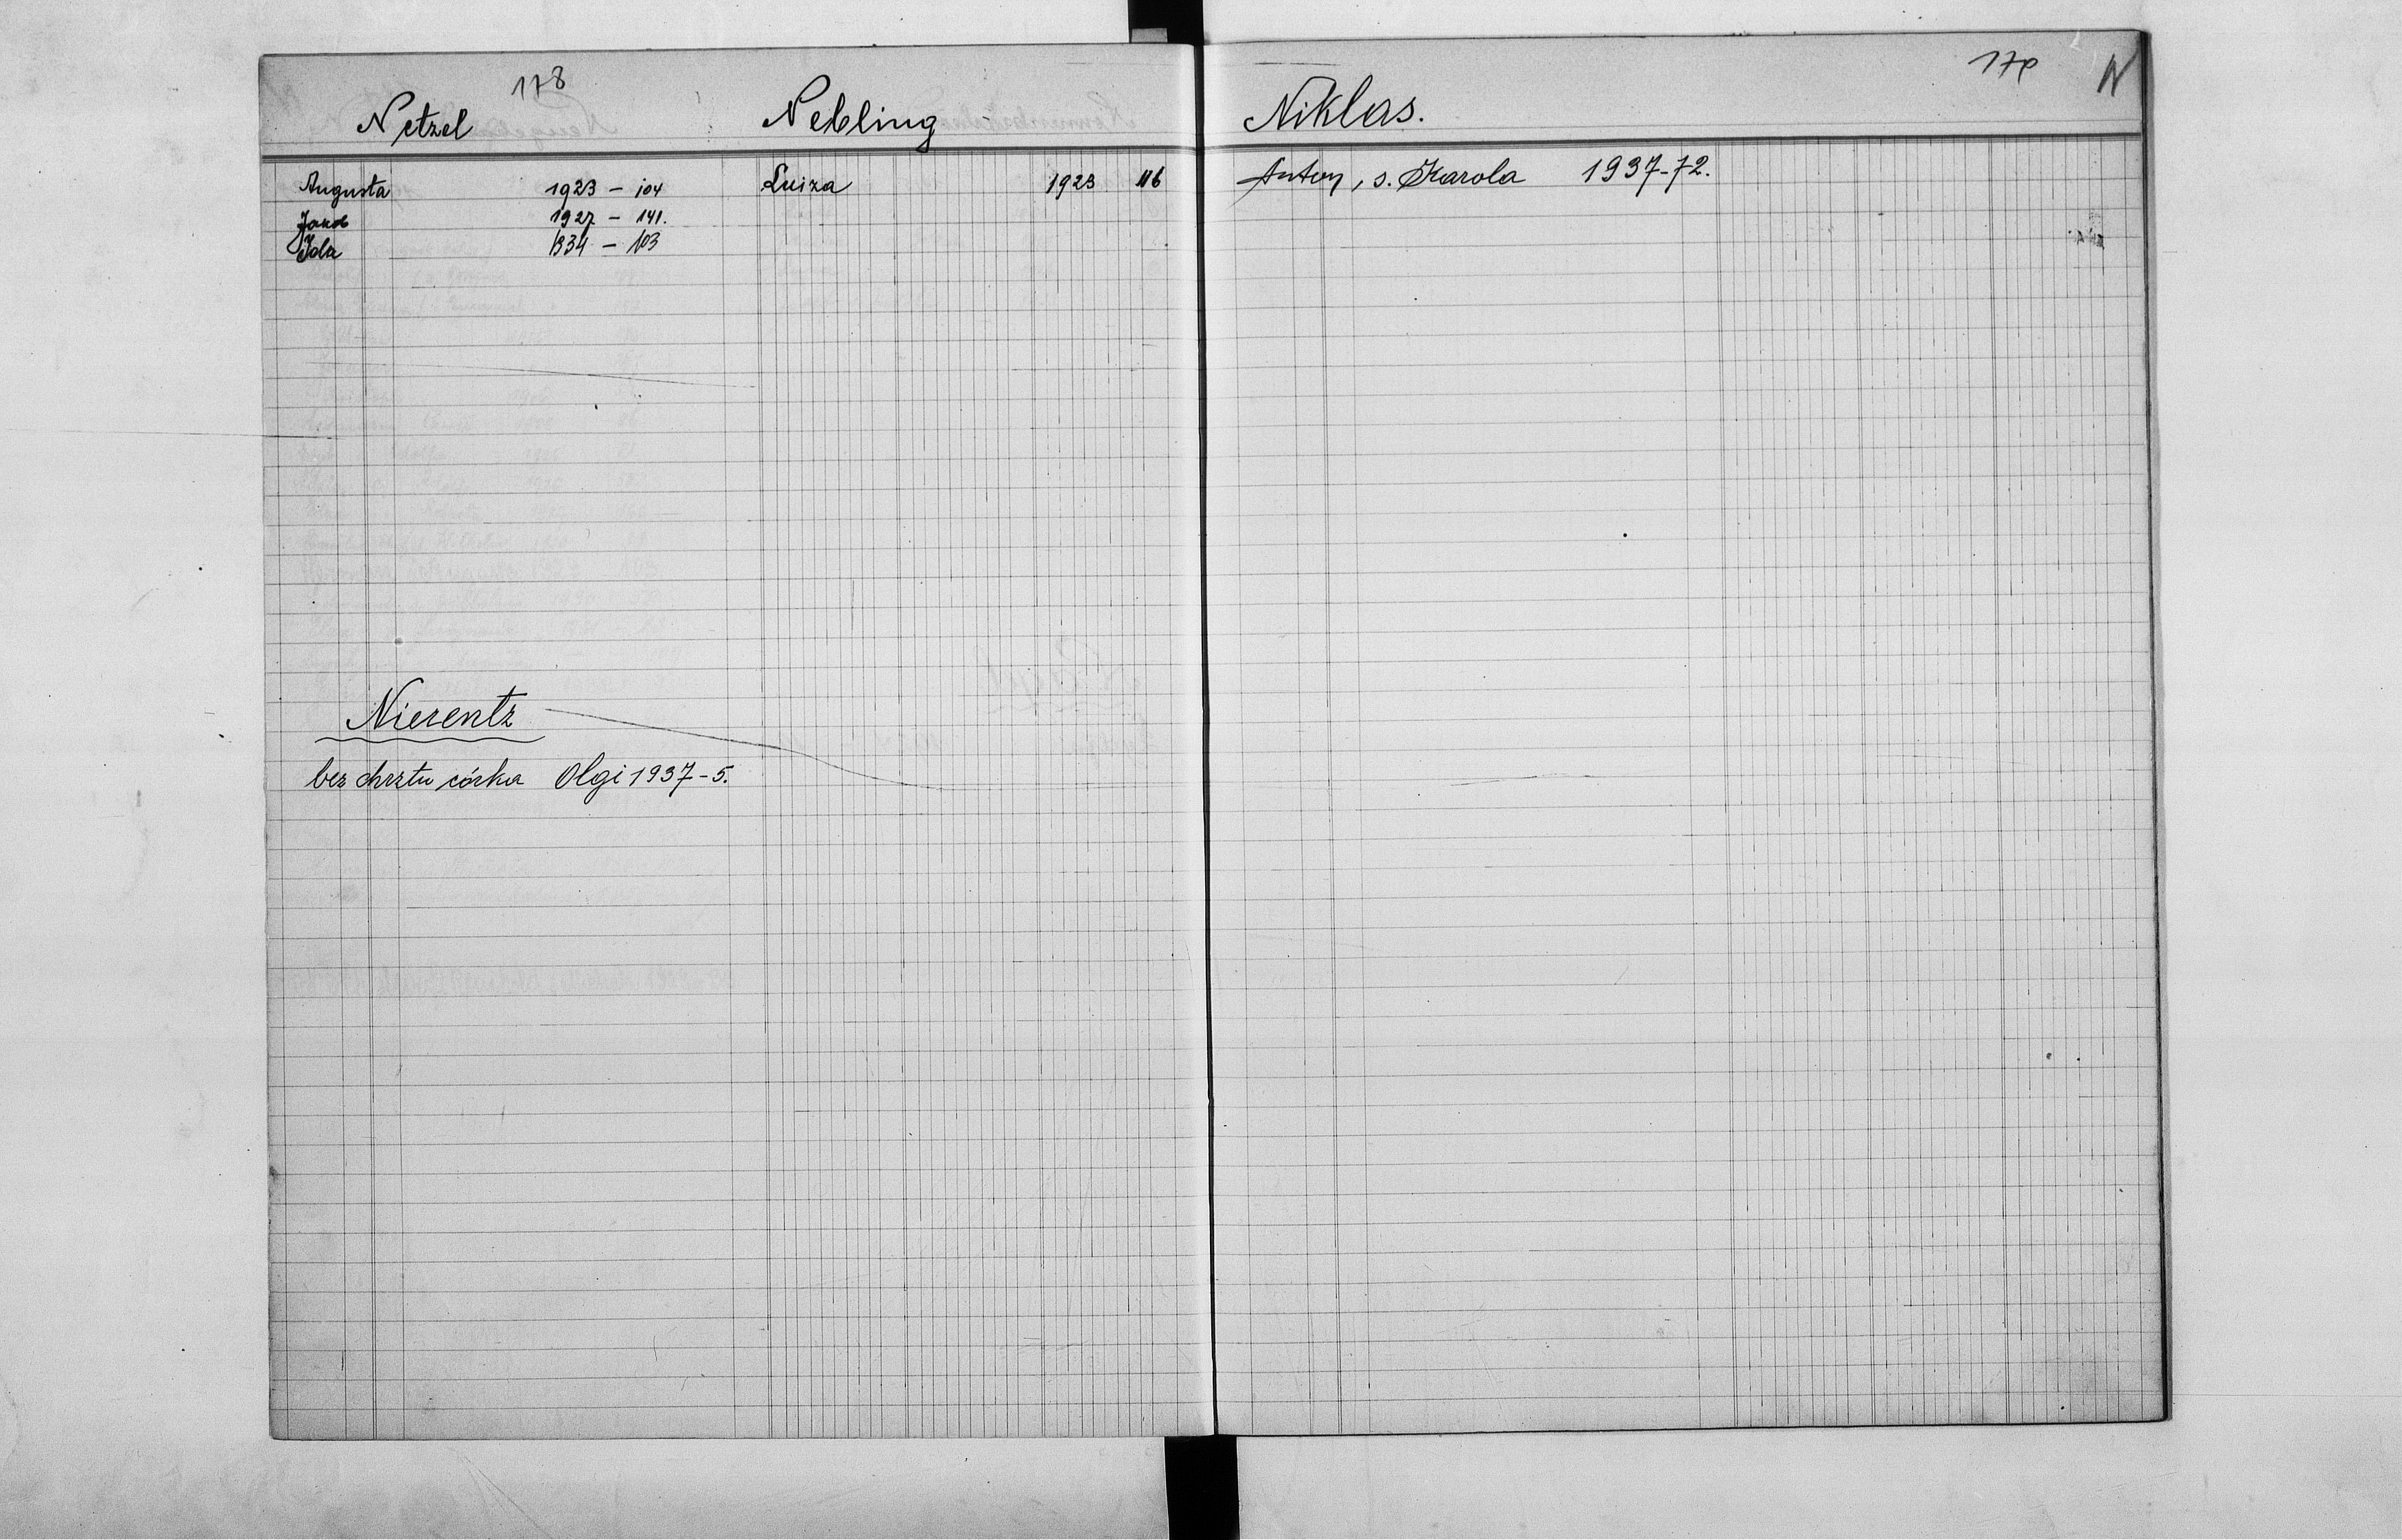 178
Netzel
Augusta 1923 - 104
Jakob 1927 - 141.
Ida 1934 - 103
Nebling
Luiza 1923 116
Nierentz
bez chrztu córka Olgi 1937-5.
179 N
Niklas.
Anton, s. Karola 1937-72.